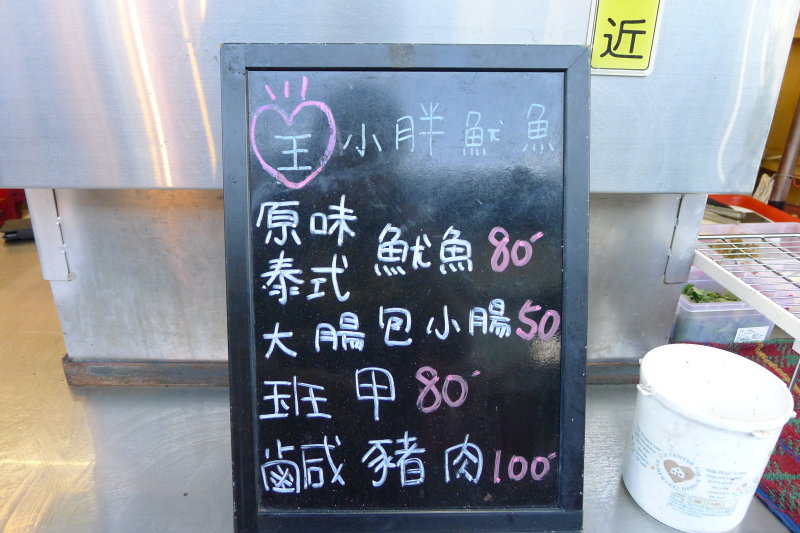 近
王 小胖魷魚
原味
泰式 魷魚 80
大腸包小腸 50
班甲 80
鹹豬肉 100